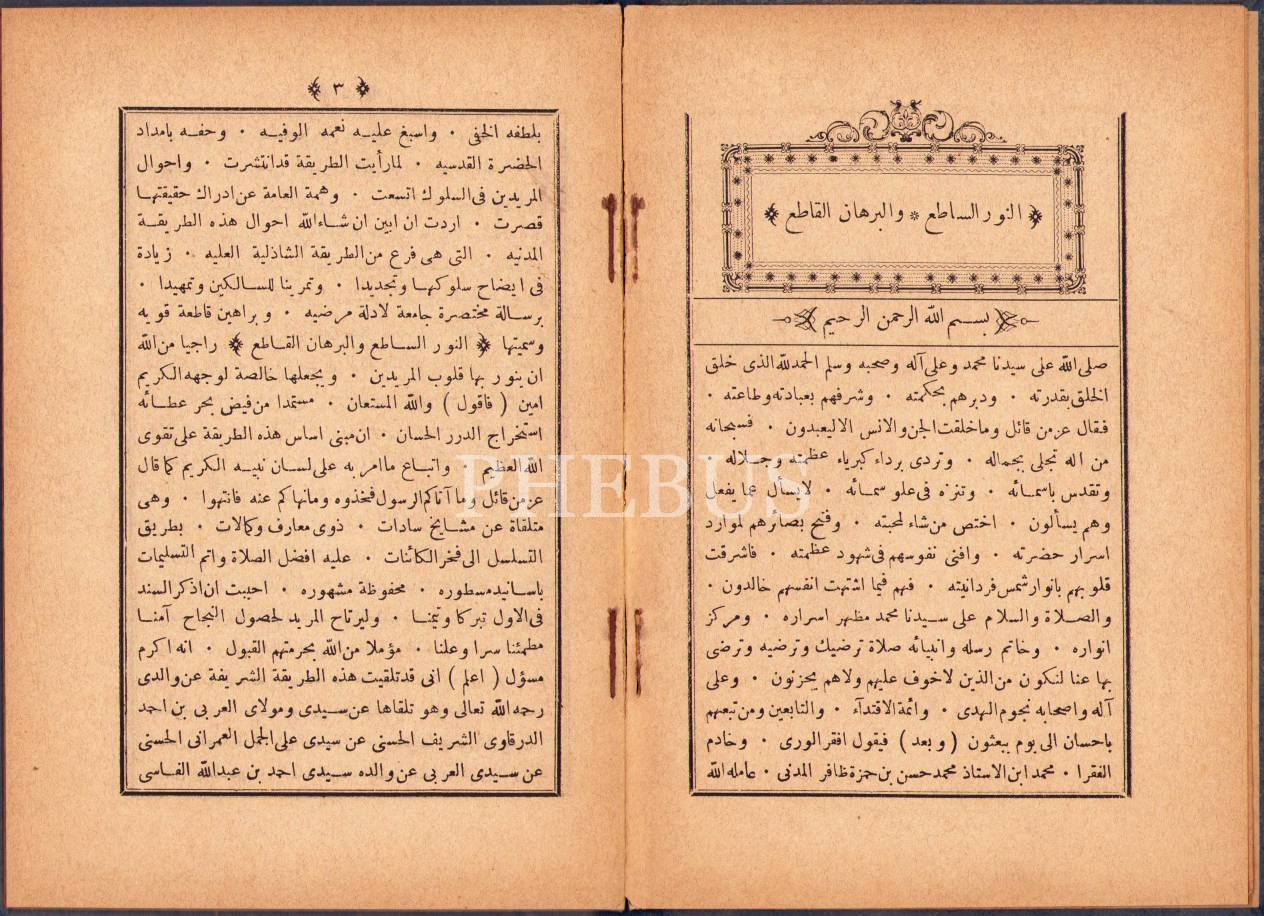 النور الساطع * والبرهان القاطع
بسم الله الرحمن الرحيم
صلى الله على سيدنا محمد وعلى آله وصحبه وسلم الحمدلله الذى خلق
الخلق بقدرته • ودبرهم بحكمته • وشرفهم بعبادته وطاعته •
فقال عز من قائل وما خلقت الجن والانس الا ليعبدون • فسبحانه
من اله تجلى بجماله • وتردى برداء كبرياء عظمته وجلاله •
وتقدس باسمائه • وتنزه فى علو سمائه • لايسأل عما يفعل
وهم يسألون • اختص من شاء لمحبته • وفتح بصائرهم لموارد
اسرار حضرته • وافنى نفوسهم فى شهود عظمته • فاشرقت
قلوبهم بانوار شمس فردانيته • فهم فيما اشتهت انفسهم خالدون •
والصلاة والسلام على سيدنا محمد مظهر اسراره • ومركز
انواره • وخاتم رسله وانبيائه صلاة ترضيك وترضيه وترضى
بها عنا لنكون من الذين لاخوف عليهم ولاهم يحزنون • وعلى
آله واصحابه نجوم الهدى • وائمة الاقتدآء • والتابعين ومن تبعهم
باحسان الى يوم يبعثون ( وبعد ) فيقول افقر الورى • وخادم
الفقرا • محمد ابن الاستاذ محمد حسن بن حمزة ظافر المدنى • عامله الله
٣
بلطفه الخفى • واسبغ عليه نعمه الوفيه • وحفه بامداد
الحضرة القدسيه • لما رأيت الطريقة قد انتشرت • واحوال
المريدين فى السلوك اتسعت • وهمة العامة عن ادراك حقيقتها
قصرت • اردت ان ابين ان شاءالله احوال هذه الطريقة
المدنيه • التى هى فرع من الطريقة الشاذلية العليه • زيادة
فى ايضاح سلوكها وتجديدا • وتمرينا للسالكين وتمهيدا •
برسالة مختصرة جامعة لادلة مرضيه • وبراهين قاطعة قويه
وسميتها النور الساطع والبرهان القاطع راجيا من الله
ان ينور بها قلوب المريدين • ويجعلها خالصة لوجهه الكريم
امين ( فاقول ) والله المستعان • مستمدا من فيض بحر عطائه
استخراج الدرر الحسان • ان مبنى اساس هذه الطريقة على تقوى
الله العظيم • واتباع ماامر به على لسان نبيه الكريم كما قال
عز من قائل وما آتاكم الرسول فخذوه ومانهاكم عنه فانتهوا • وهى
متلقاة عن مشايخ سادات • ذوى معارف وكمالات • بطريق
التسلسل الى فخر الكائنات • عليه افضل الصلاة واتم التسليمات
باسانيد مسطوره • محفوظة مشهوره • احببت ان اذكر السند
فى الاول تبركا وتيمنا • وليرتاح المريد لحصول النجاح آمنا
مطمئنا سرا وعلنا • مؤملا من الله بحرمتهم القبول • انه اكرم
مسؤل ( اعلم ) انى قد تلقيت هذه الطريقة الشريفة عن والدى
رحمه الله تعالى وهو تلقاها عن سيدى ومولاى العربى بن احمد
الدرقاوى الشريف الحسنى عن سيدى على الجمل العمرانى الحسنى
عن سيدى العربى عن والده سيدى احمد بن عبدالله الفاسى
PHEBUS